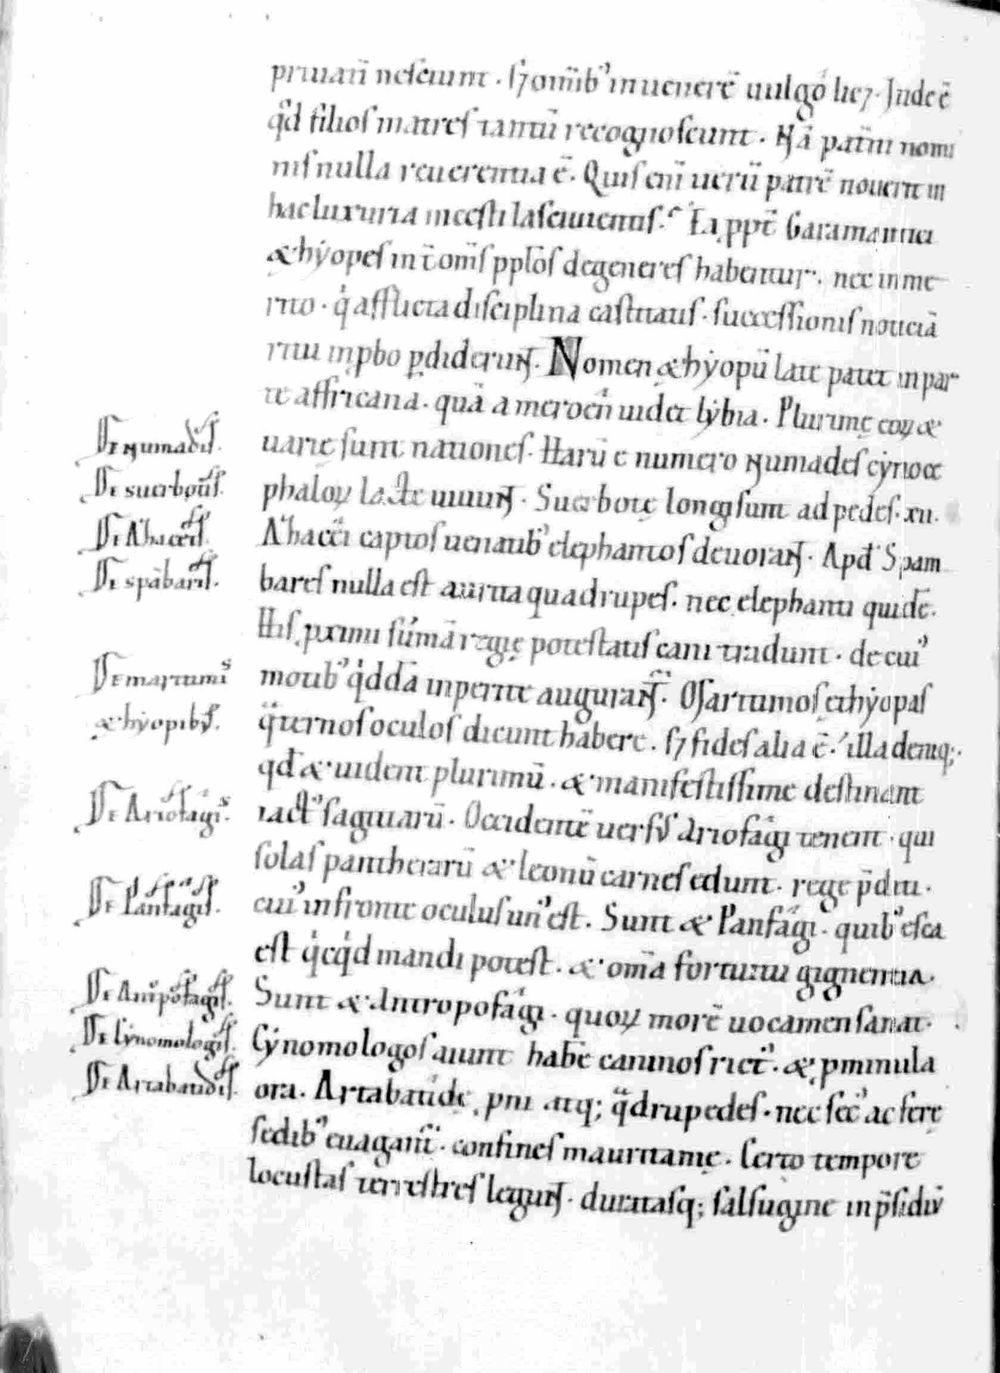 priuatī nesciunt · s; om̄ib' in uenerē uulgo licꝫ · Inde ē
qd̄ filios matres tantū recognoscunt · Nā patni nomi
nis nulla reuerentia ē. Quis eni uerū patrē nouerit in
hac luxuria incesti lasciuientis. Ea ppt̄ Garamantici
æthyopes int̄ om̄s pplōs degeneres habentur · nec inme
rito · q̓ afflicta disciplina castitatis · successionis noticiā
ritu inpbo ꝑdiderunt. Nomen æthyopū late patet in par
te affricana · quā a meroen̄ uidet lybia · Plurimę eoꝝ &
uarię sunt nationes · Harū e numero Numades cynoce
phaloꝝ lacte uiuunt · Suerbotę longi sunt ad pedes · xii ·
Ahacci captos uenatib' elephantos deuorant · Apd̄ Spam
bares nulla est aurita quadrupes · nec elephanti quidē.
His ꝓximi sūmā regię potestatis cani tradunt · de cui'
motib' qd̓dā inperitet augurant. Osartumos ethyopas
q̄ternos oculos dicunt habere · s; fides alia ē · illa deniq;
qd̄ & uident plurimū · & manifestissime destinant
iact' sagittarū · Occidentē uersus Ariofagi tenent · qui
solas pantherarū & leonū carnes edunt · rege p̄diti ·
cui' in fronte oculus un' est. Sunt & Panfagi · quib' esca
est q̓cq̓d mandi potest · & om̄a fortuitu gignentia ·
Sunt & Antropofagi · quoꝝ morē uocamen sanat ·
Cynomologos aiunt habē caninos rict' · & ꝓminula
ora · Artabatitę ꝓni atq; q̄drupedes · nec sec' ac fere
sedib' euagant̄ · confines mauritanię · Certo tempore
locustas terrestres legunt · duratasq; salsugine in p̄sidiū
De Numadis.
De suerbotis.
De Ahaccis.
De spābaris.
De martumis
æthyopibus.
De Ariofagis.
De Panfagis.
De Antropofagis.
De Cynomologis.
De Artabatidis.